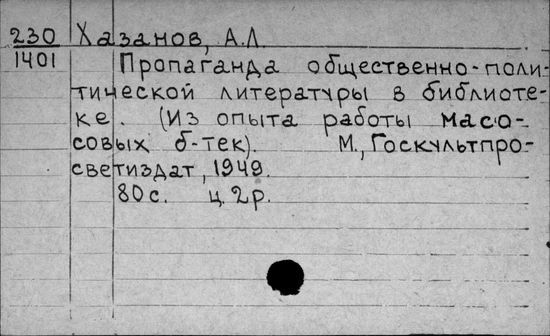 230 Хазанов, А.Л.
1401 Пропаганда общественно-поли-
тической литературы в библиоте-
ке. (Из опыта работы масо-
совых б-тек). М., Госкультпро-
светиздат, 1949.
80с. ц. 2р.